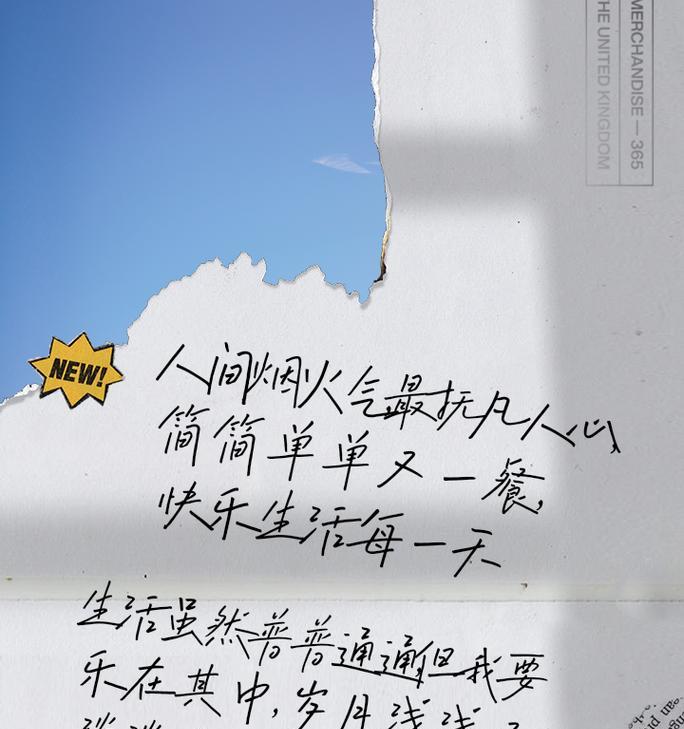 MERCHANDISE — 365
THE UNITED KINGDOM
NEW!
人间烟火气最抚凡人心
简简单单又一餐,
快乐生活每一天
生活虽然普普通通但我要
乐在其中,岁月浅浅